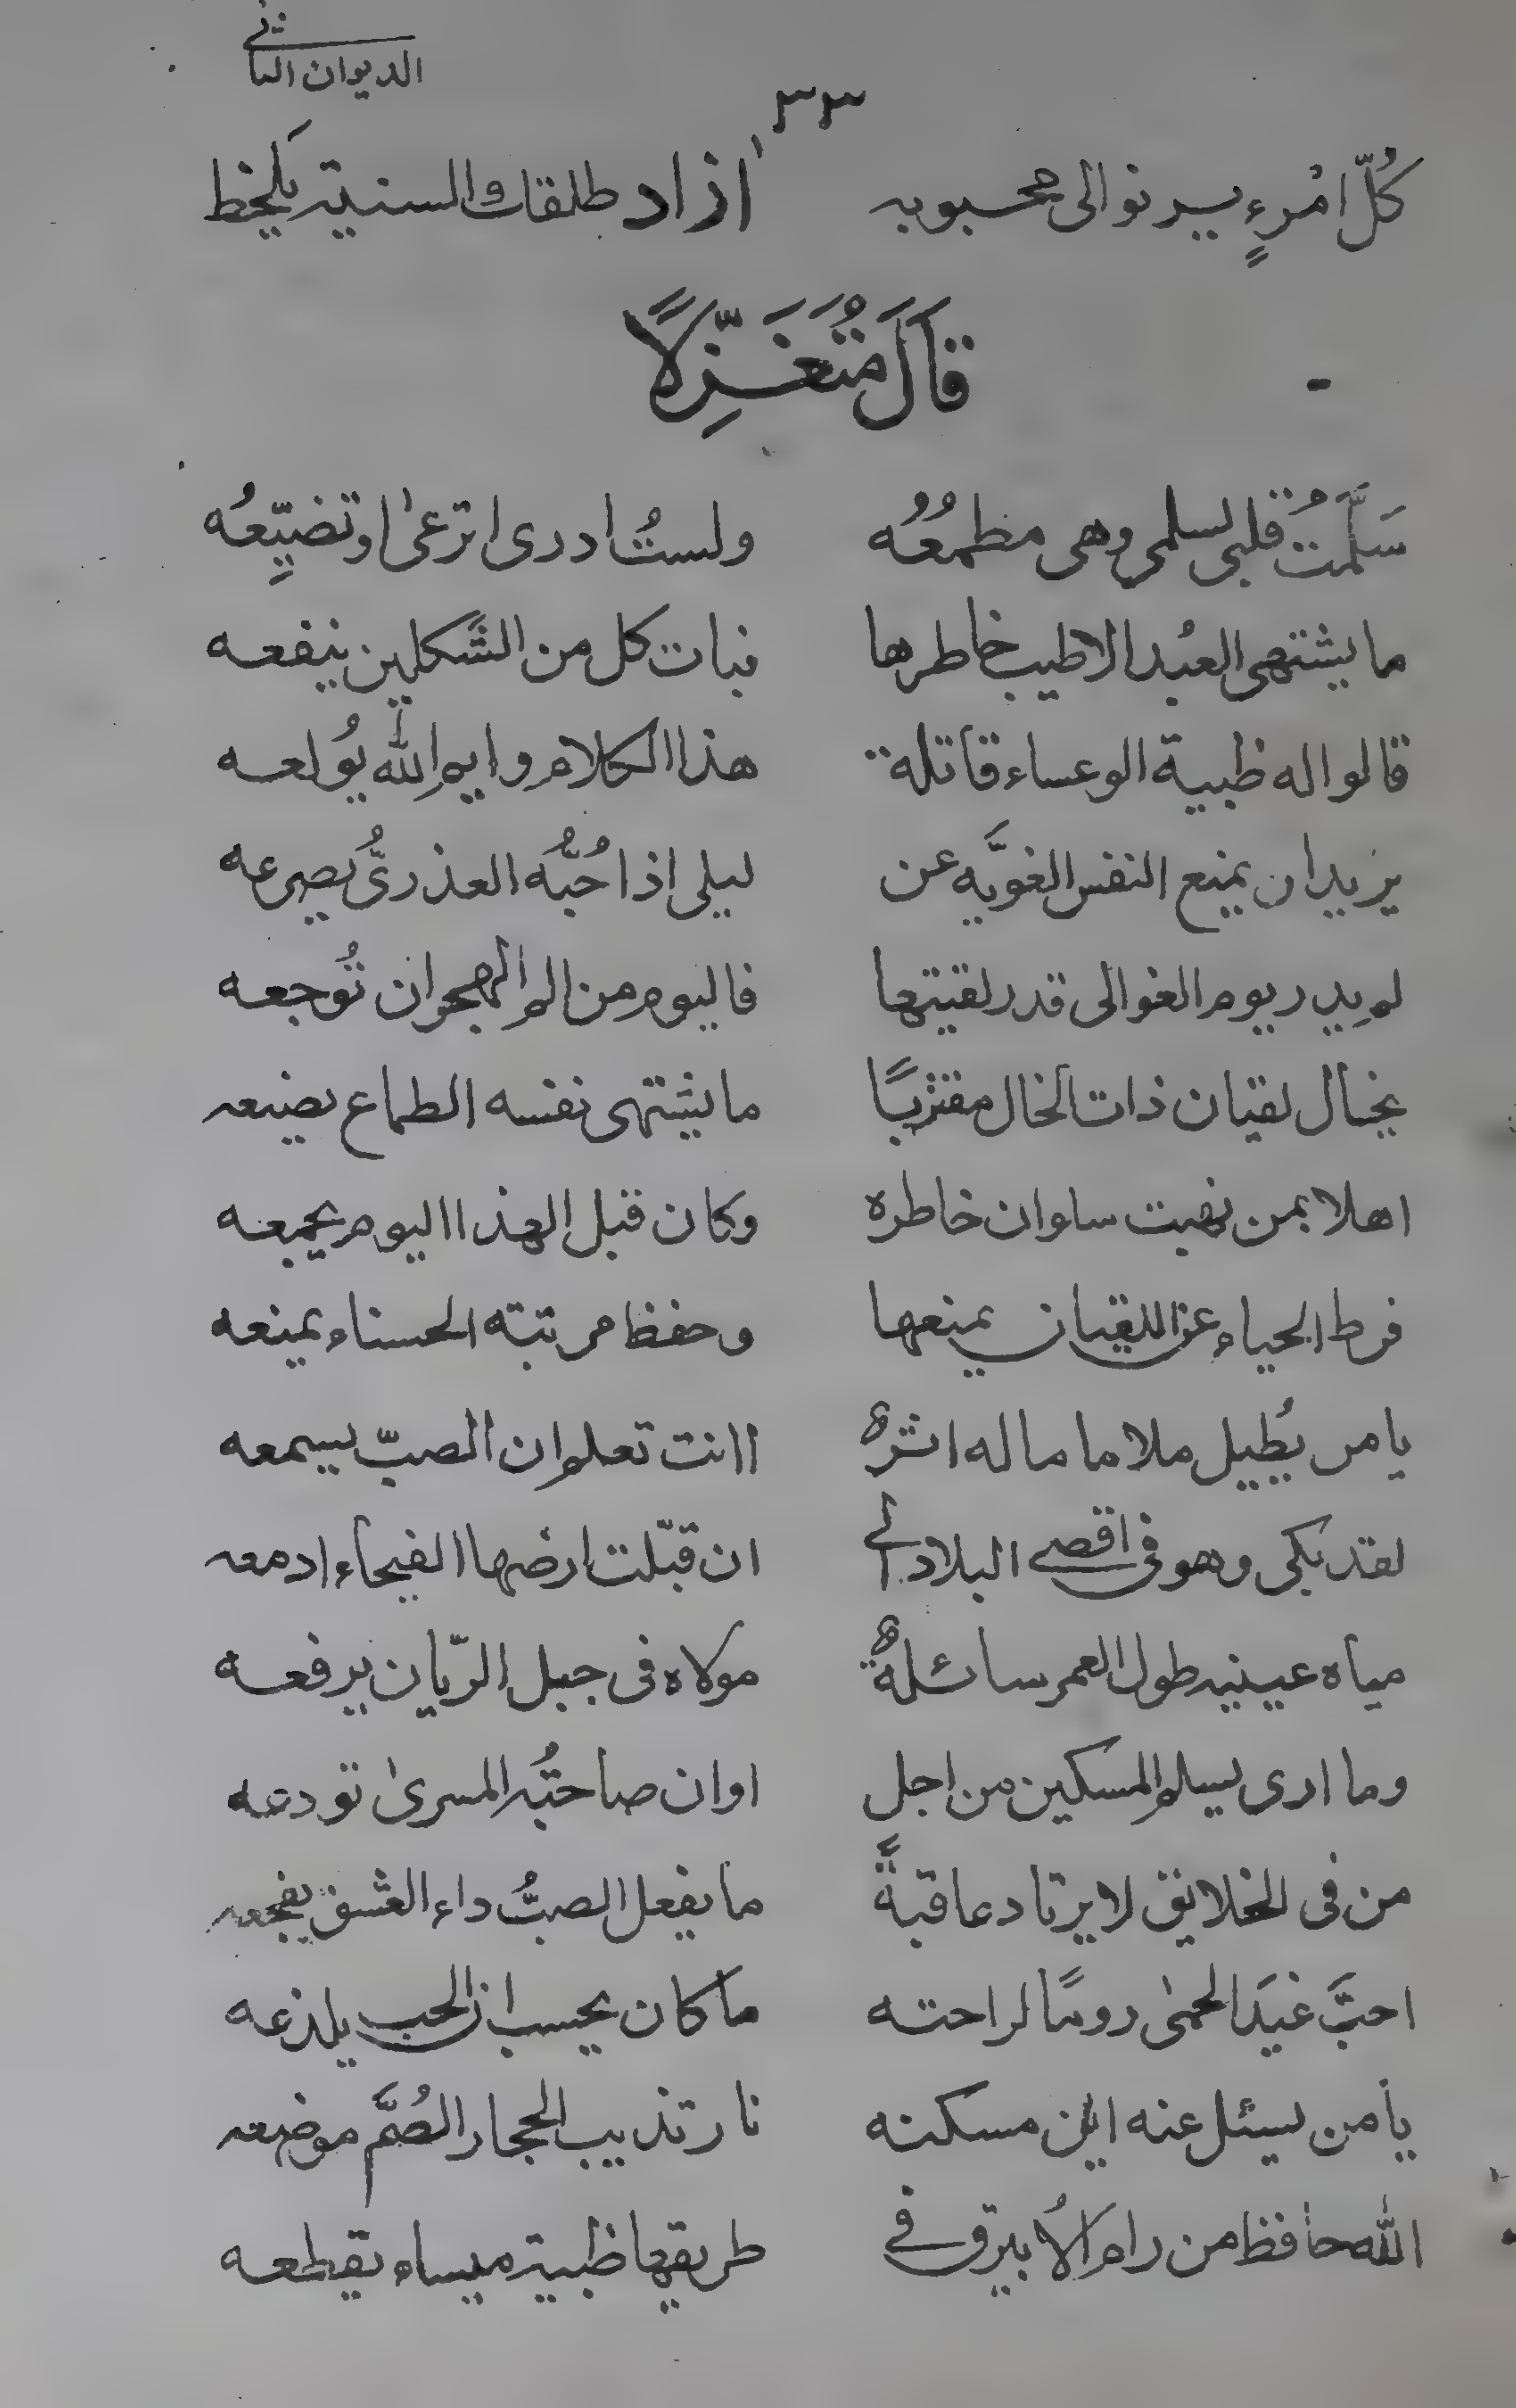 الديوان الثانى
٣٣
كُلّ امْرءٍ يرنو الى محبوبه ازاد طلقاتك السنية يلحظ
قَالَ مُتَغَزِّلًا
سَلَّمتُ قلبى لسلمى وهى مطمعُهُ ولستُ ادرى اترعىٰ او تضيّعُه
ما يشتهى العبُد الا طيب خاطرها نبات كل من الشَكلين ينفعه
قالوا له ظبية الوعساء قاتلة هذا الكلام وايم الله يُولعه
يريد ان يمنع النفس الغويَّه عن ليلى اذا حُبُّه العذرىُّ يصرعه
لم يدر يوم الغوالى قدر لقيتها فاليوم من الم الهجران تُوجعه
يخال لقيان ذات الخال مقتربًا ما يشتهى نفسه الطماع يضيعه
اهلا بمن نهبت سلوان خاطره وكان قبل الهذا اليوم يجمعه
فرط الحياء عن اللقيان يمنعها وحفظ مرتبته الحسناء يمنعه
يا من يُطيل ملاما ما له اثرٌ اانت تعلم ان الصبّ يسمعه
لقد بكى وهو فى اقصى البلاد الى ان قبّلت ارضها الفيحاء ادمعه
مياه عينيه طول العمر سائلةٌ مولاه فى جبل الريّان يرفعه
وما ارى يسلم المسكين من اجل اوان صاحتُه المسرىٰ تودعه
من فى الخلايق لا يرتاد عاقبةً ما يفعل الصبُّ داء العشق يفجعه
احبَّ غيَد الحمىٰ رومًا لراحته ما كان يحسب ان الحب يلذعه
يا من يسئل عنه اين مسكنه نار تذيب الحجار الصُمَّ موضعه
الله حافظ من رام الاُبيرق فى طريقها ظبية ميساء يقطعه